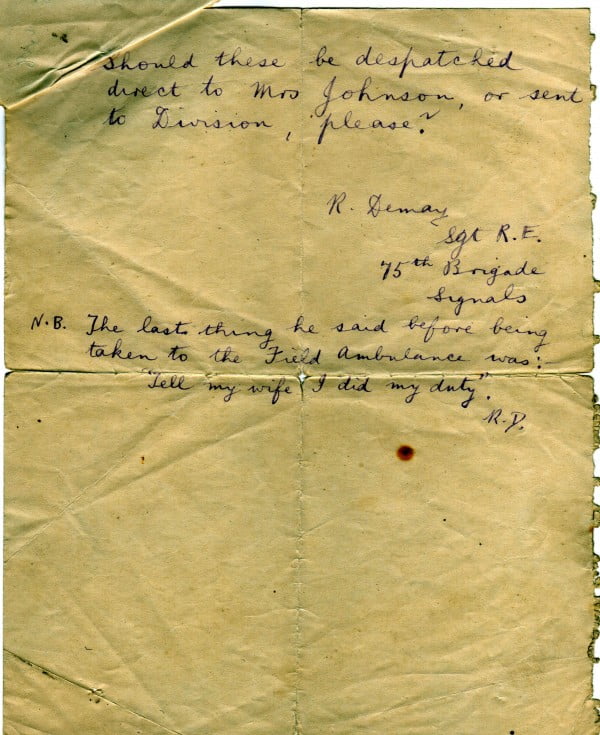 should these be despatched
direct to Mrs Johnson, or sent
to Division, please?
R. Demay
Sgt R.E.
75th Brigade
Signals
N.B. The last thing he said before being
taken to the Field Ambulance was:-
"Tell my wife I did my duty".
R.D.